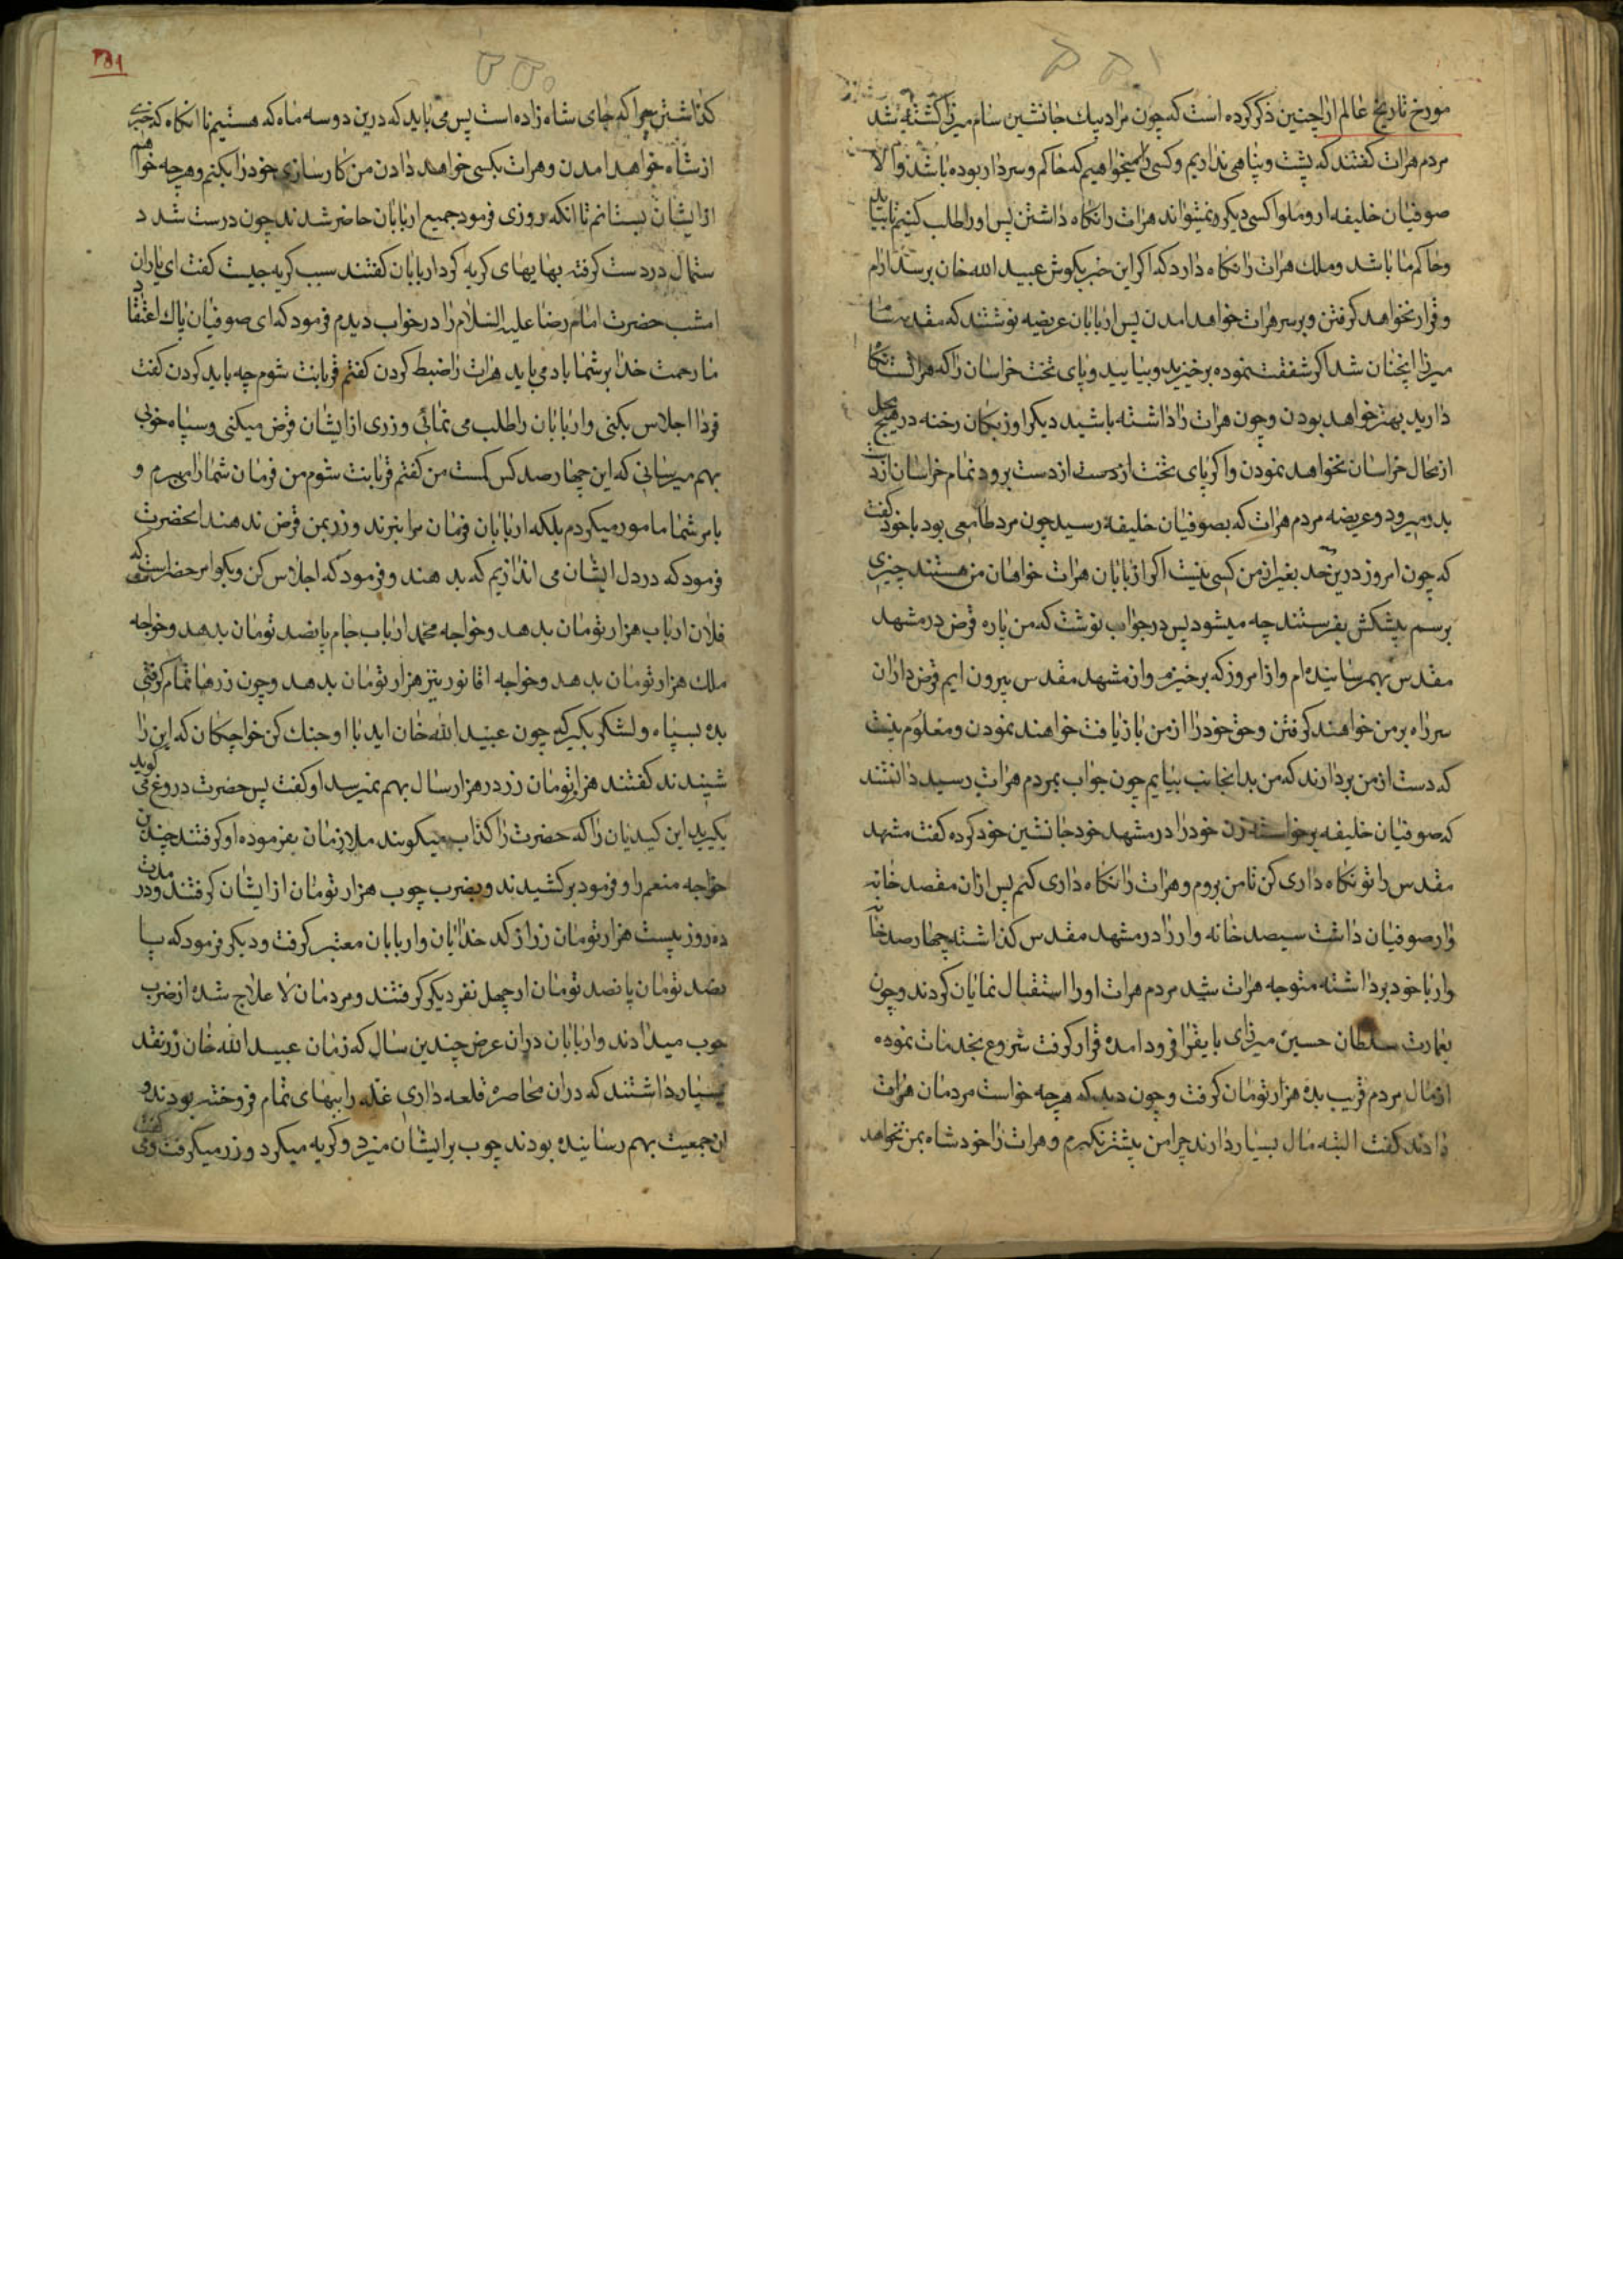 مورخ تاریخ عالم ارا چنین ذکر کرده است که چون مراد بیك جانشین سام میرزا کشته شد
مردم هرات کفتند که پشت و پناهی نداریم و کسی را میخواهیم که حاکم و سردار بوده باشد و الا
صوفیان خلیفه اروملوا کسی دیکر و نمیتواند هرات را نکاه داشتن پس او را طلب کنیم تا بیاید
و حاکم ما باشد و ملك هرات را نکاه دارد که اکر این خبر بکوش عبید الله خان برسد ارام
و قرار نخواهد کرفتن و بر سر هرات خواهد امدن پس اربابان عریضه نوشتند که مقدمه سام
میرزا اپخنان شد اکر شفقت نموده برخیزید و بیایید و پای تخت خراسان را که هراتست نکاه
دارید بهتر خواهد بودن و چون هرات را داشته باشید دیکر اوزبکان رخنه در هیچ محل
از محال خراسان نخواهد نمودن و اکر پای تخت از دست از دست برود تمام خراسان از دست
بدر میرود و عریضه مردم هرات که بصوفیان خلیفه رسید چون مرد طامعی بود با خود کفت
که چون امروز درین حد بغیر از من کسی نیست اکر اربابان هرات خواهان من هستند چیزی
برسم پیشکش بفرستند چه میشود پس در جواب نوشت که من پاره قرض در مشهد
مقدس بهم رسانیده ام و از امروز که برخیزم و از مشهد مقدس بیرون ایم قرض داران
سر راه بر من خواهند کرفتن و حق خود را از من بازیافت خواهند نمودن و معلوم نیست
که دست از من بردارند که من بدانجانب بیایم چون جواب بمردم هرات رسید دانستند
که صوفیان خلیفه برخواسته زن خود را در مشهد خود جانشین خود کرده کفت مشهد
مقدس را تو نکاه داری کن تا من بروم و هرات را نکاه داری کنم پس ازان مقصد خانه
وار صوفیان داشت سیصد خانه وار را در مشهد مقدس کذاشته چهارصد خانه
وار با خود برداشته متوجه هرات شد مردم هرات او را استقبال نمایان کردند و چون
بعمارت سلطان حسین میرزای بایقرا فرود امده قرار کرفت شروع بخدمات نموده
از مال مردم قریب بده هزار تومان کرفت و چون دید که هرچه خواست مردمان هرات
دادند کفت البته مال بسیار دارند چرا من بیشتر نکیرم و هرات را خود شاه بمن نخواهد
۲۵۱
کذاشتن چرا که جای شاه زاده است پس می باید که درین دو سه ماه که هستیم تا انکاه که خبری
از شاه خواهد امدن و هرات بکسی خواهد دادن من کارسازی خود را بکنم و هرچه خواهم
از ایشان بستانم تا انکه روزی فرمود جمیع اربابان حاضر شدند چون درست شد د
ستمال در دست کرفته بهایهای کریه کرد اربابان کفتند سبب کریه چیست کفت ای یاران
امشب حضرت امام رضا علیه السلام را در خواب دیدم فرمود که ای صوفیان پاك اعتقاد
ما رحمت خدا بر شما باد می باید هرات را ضبط کردن کفتم قربانت شوم چه باید کردن کفت
فردا اجلاس بکنی و اربابان را طلب می نمائی و زری از ایشان قرض میکنی و سپاه خوبی
بهم میرسانی که این چهارصد کس کمست من کفتم قربانت شوم من فرمان شما را میبرم و
بامر شما مامور میکردم بلکه اربابان فرمان مرا نبرند و زر بمن قرض ندهند انحضرت
فرمود که در دل ایشان می اندازیم که بدهند و فرمود که اجلاس کن و بکو امر حضرتست که
فلان ارباب هزار تومان بدهد و خواجه محمد ارباب جام پانصد تومان بدهد و خواجه
ملك هزار تومان بدهد و خواجه اقا نور نیز هزار تومان بدهد و چون زرها تمام کرفتی
بده بسپاه و لشکر بکیر که چون عبید الله خان اید با او جنك کن خواجکان که این را
شنیدند کفتند هزار تومان زر در هزار سال بهم نمیرسد او کفت پس حضرت دروغ می کوید
بکیرید این کیدیان را که حضرت را کذاب میکویند ملازمان بفرموده او کرفتند چندین
خواجه منعم را و فرمود بر کشیدند و بضرب چوب هزار تومان از ایشان کرفتند و در مدت
ده روز بیست هزار تومان زر از کد خدایان و اربابان معتبر کرفت و دیکر فرمود که پا
نصد تومان پانصد تومان از چهل نفر دیکر کرفتند و مردمان لا علاج شده از ضرب
چوب میدادند و اربابان دران عرض چندین سال که زمان عبید الله خان زر نقد
بسیار داشتند که دران محاصره قلعه داری غله را ببهای تمام فروخته بودند و
ان جمعیت بهم رسانیده بودند چوب بر ایشان میزد و کریه میکرد و زر میکرفت و می کفت